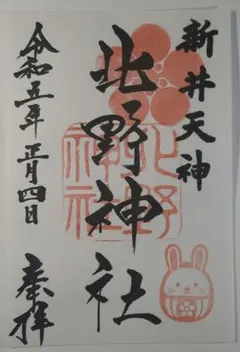 新井天神
北野神社
北野神社
令和五年 正月四日
奉拝